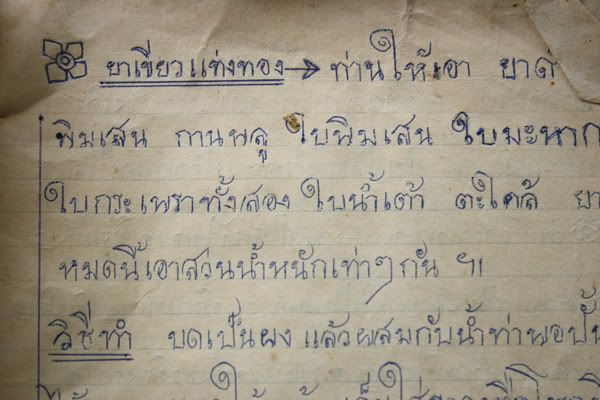 ยาเขียวแท่งทอง → ท่านให้เอา ยาด
พิมเสน กานพลู ใบพิมเสน ใบมะนาก
ใบกระเพราทั้งสอง ใบน้ำเต้า ตะไคล้ ยา
หมดนี้เอาสวนน้ำหนักเท่าๆกัน ฯ
วิธีทำ บดเป็นผง แล้วผสมกับน้ำท่าพอปั้น